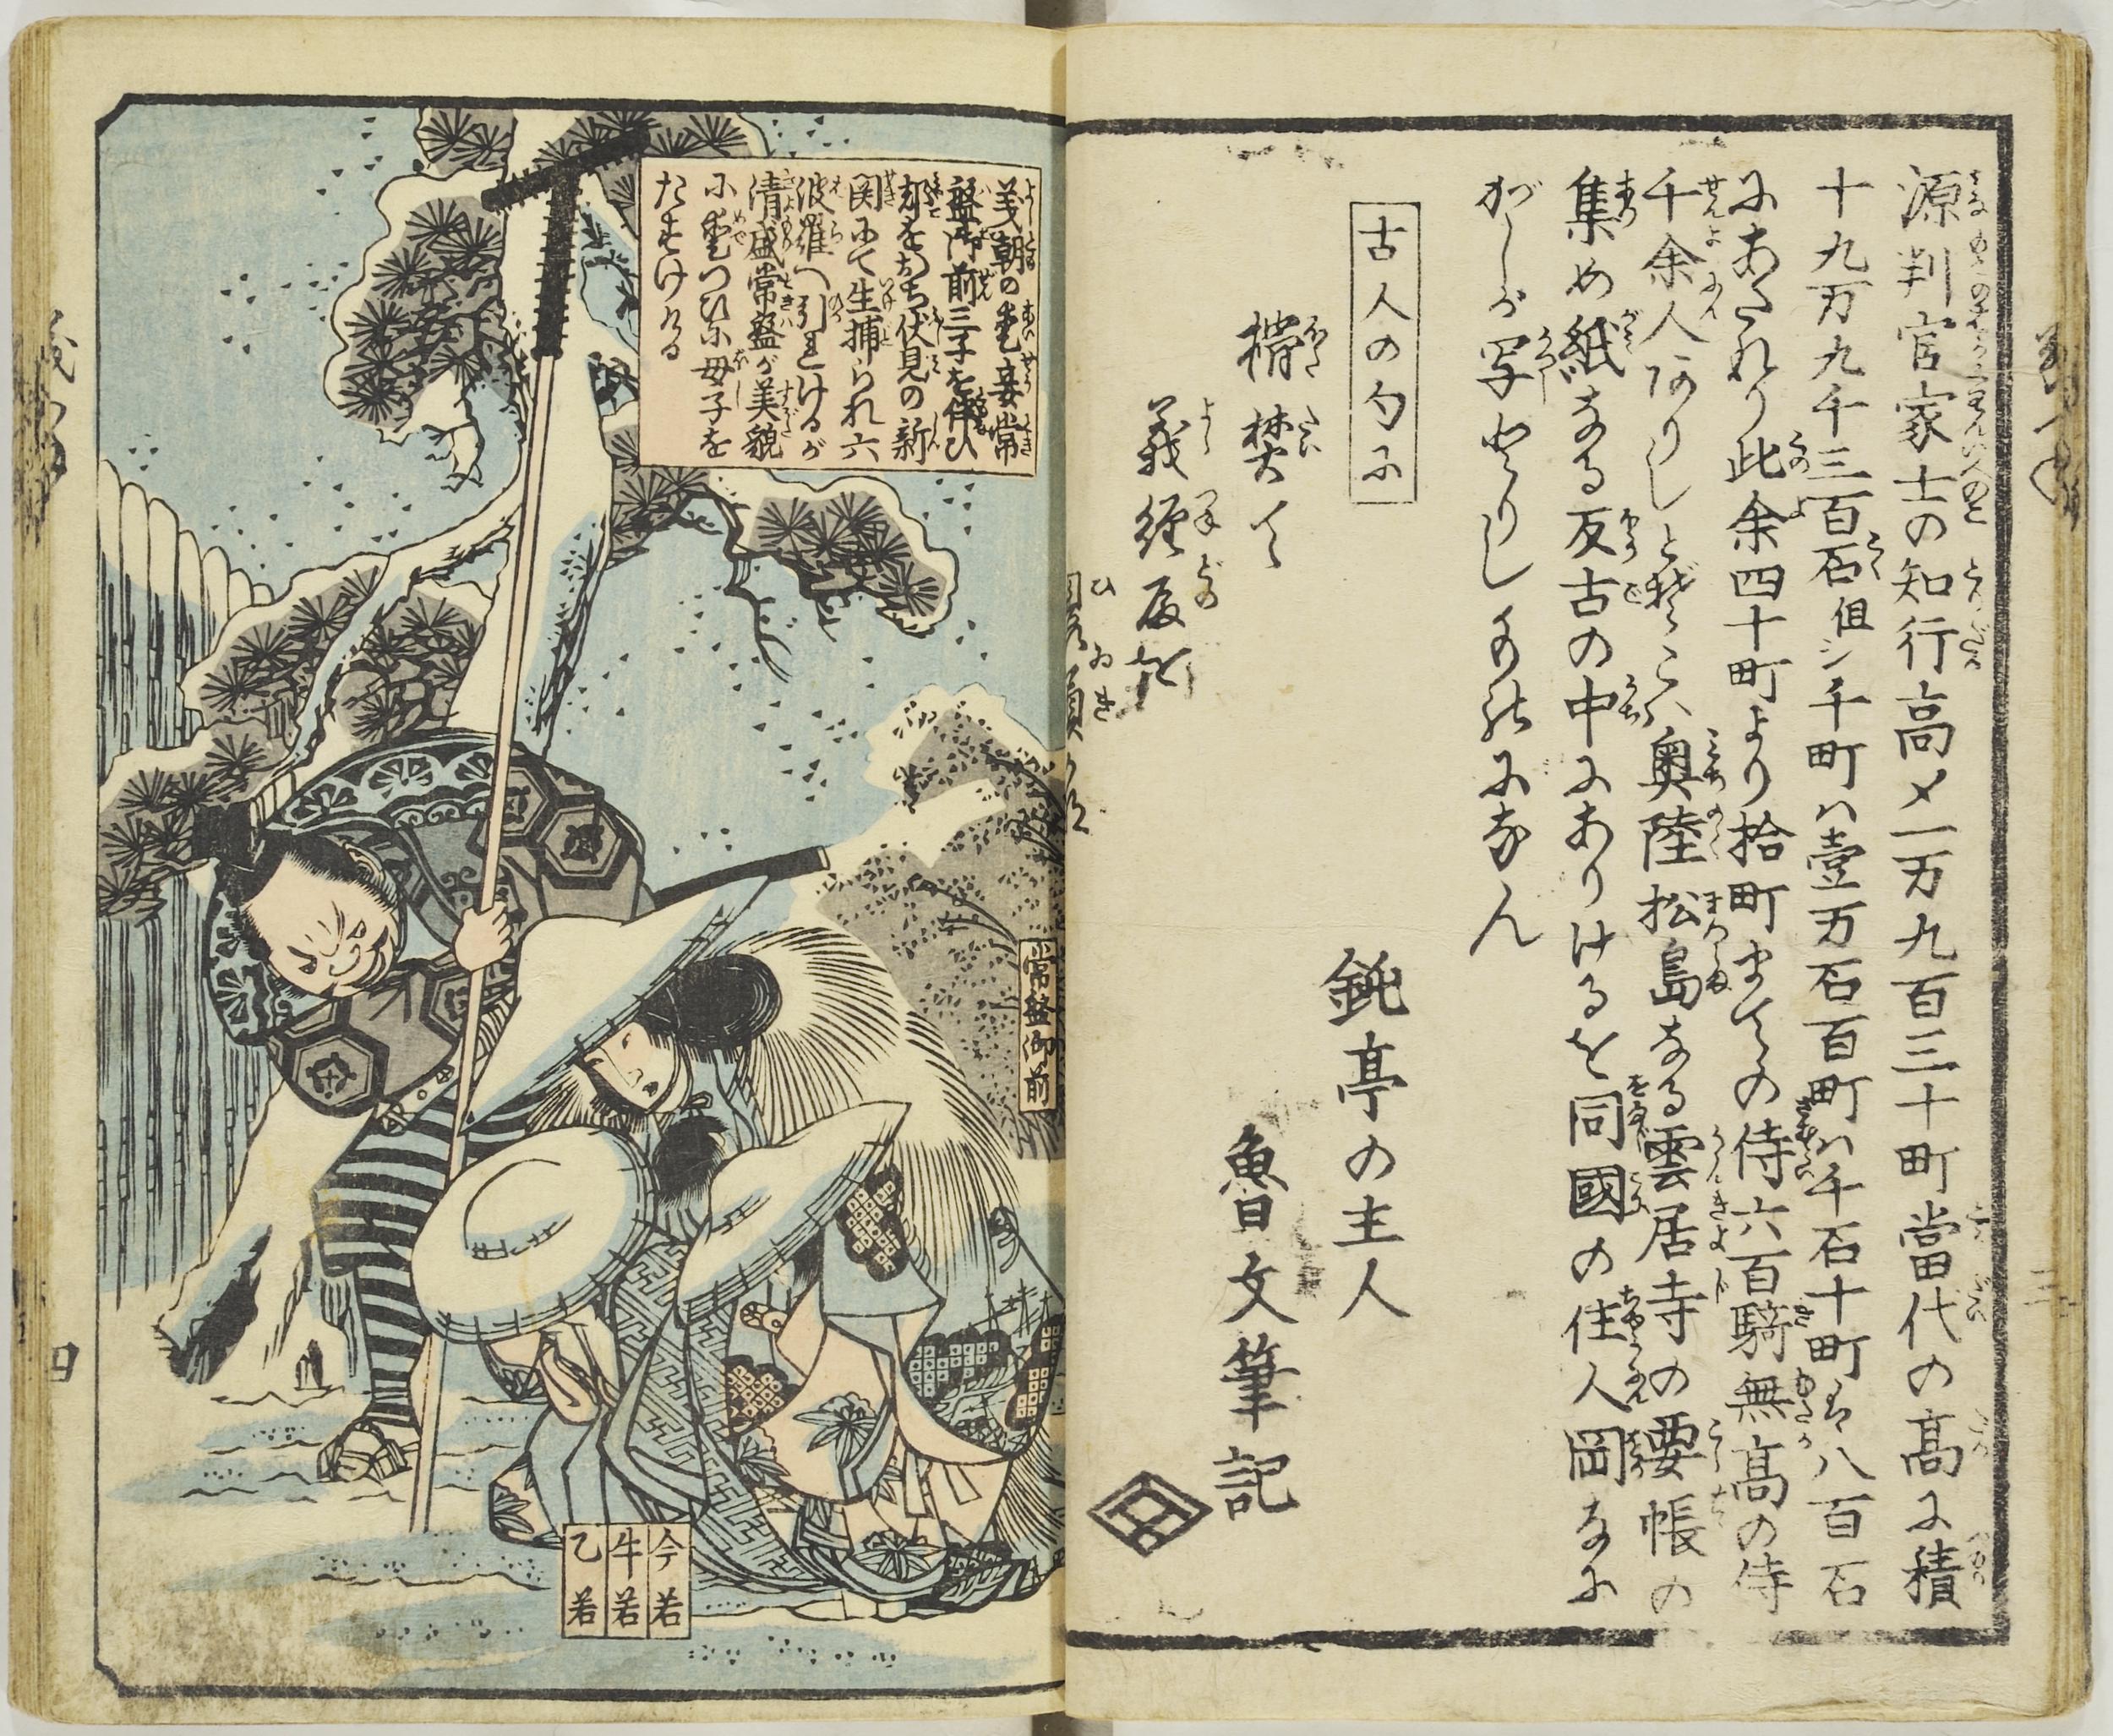 源判官家士の知行高〆一万九百三十町當代の髙に積
十九万九千三百石但シ千町ハ壹万石百町ハ千石十町ハ八百石
にあたれり此余四十町より拾町までの侍六百騎無髙の侍
千余人ありしとぞこハ奥陸松島なる雲居寺の腰帳の
集め紙なる反古の中にありけるを同國の住人岡なに
がしが写せりしものになん
古人の句に
榾焚て
義経殿を
ひゐき
鈍亭の主人
魯文筆記
義朝の愛妾常
盤御前三子を伴ひ
都をおち伏見の新
関にて生捕られ六
波羅へ引れけるが
清盛常盤が美貌
に愛つひに母子を
たすけける
常盤御前
今若
牛若
乙若
四